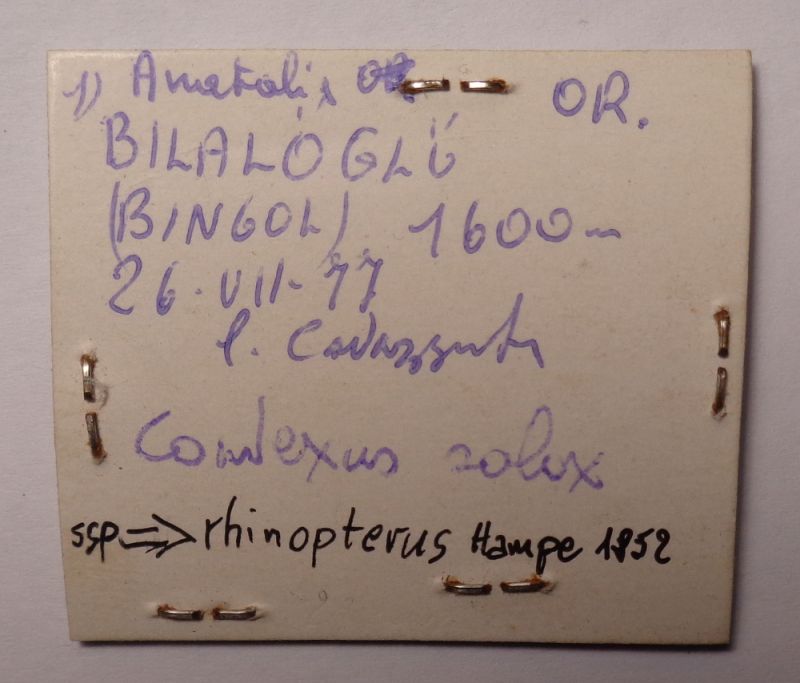 1) Anatolia OR. OR.
BILALOGLU
(BINGOL) 1600 m
26.VII.77
l. Cavazzuti
Convexus
ssp => rhinopterus Hampe 1852